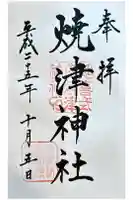 奉拝
燒津神社
平成二五年
十月五日